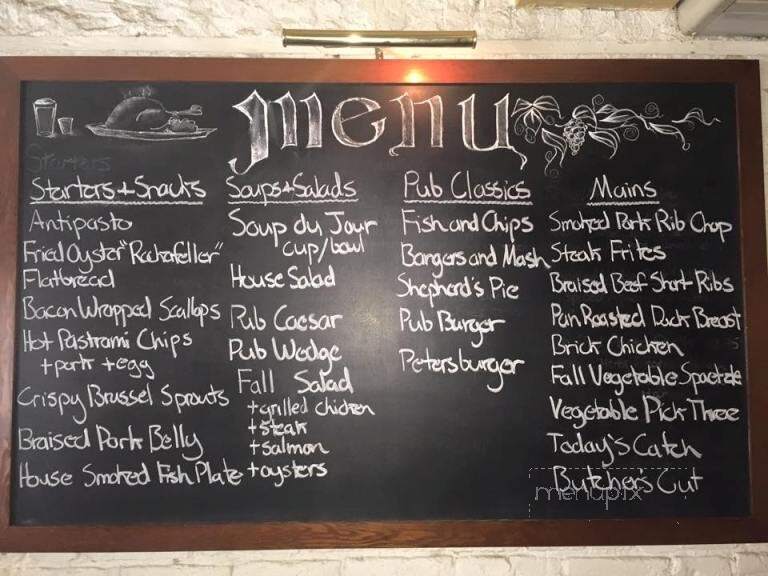 Menu
Starters
Starters + Snacks
Antipasto
Fried Oyster "Rockafeller"
Flatbread
Bacon Wrapped Scallops
Hot Pastrami Chips
+ pork + egg
Crispy Brussel Sprouts
Braised Pork Belly
House Smoked Fish Plate
Soups + Salads
Soup du Jour
cup/bowl
House Salad
Pub Caesar
Pub Wedge
Fall Salad
+ grilled chicken
+ steak
+ salmon
+ oysters
Pub Classics
Fish and Chips
Bangers and Mash
Shepherd's Pie
Pub Burger
Petersburger
Mains
Smoked Pork Rib Chop
Steak Frites
Braised Beef Short Ribs
Pan Roasted Duck Breast
Brick Chicken
Fall Vegetable Spaetzle
Vegetable Pick Three
Today's Catch
Butcher's Cut
menupix